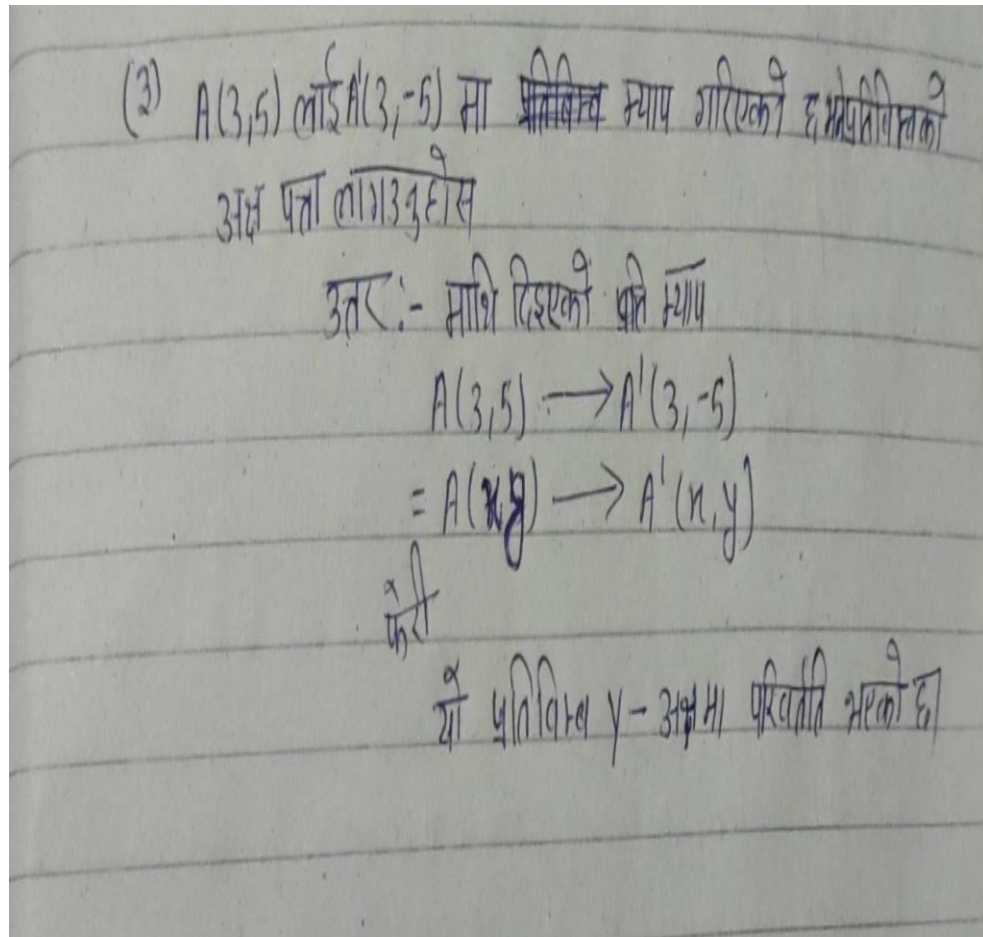 (३) A(3,5) लाई A'(3,-5) मा म्याप गरिएको छ भने प्रतिविम्वको
अक्ष पत्ता लागउनुहोस
उत्तर :- माथि दिइएको प्रति म्याप
A(3,5) → A'(3,-5)
= A(x,y) → A'(x,y)
फेरी
यो प्रतिविम्ब y-अक्षमा परिवर्तति भएको छ।